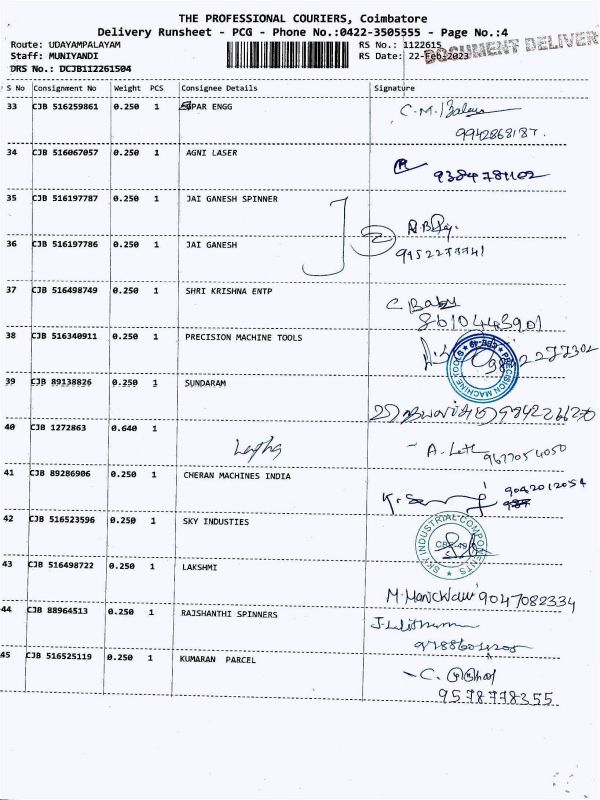 THE PROFESSIONAL COURIERS, Coimbatore
Delivery Runsheet - PCG - Phone No.:0422-3505555 - Page No.:4
Route: UDAYAMPALAYAM RS No.: 1122615
Staff: MUNIYANDI RS Date: 22-Feb-2023
DOCUMENT DELIVER
DRS No.: DCJB112261504
S No Consignment No Weight PCS Consignee Details Signature
33 CJB 516259861 0.250 1 PAR ENGG
C.M.
9942868187.
34 CJB 516067057 0.250 1 AGNI LASER
9384781102
35 CJB 516197787 0.250 1 JAI GANESH SPINNER
36 CJB 516197786 0.250 1 JAI GANESH
37 CJB 516498749 0.250 1 SHRI KRISHNA ENTP
C Baby
8610443901
38 CJB 516340911 0.250 1 PRECISION MACHINE TOOLS
PRECISION MACHINE TOOLS
39 CJB 89138826 0.250 1 SUNDARAM
40 CJB 1272863 0.640 1
9677054050
41 CJB 89286906 0.250 1 CHERAN MACHINES INDIA
9042012054
42 CJB 516523596 0.250 1 SKY INDUSTIES
SKY INDUSTRIAL COMPONENTS
43 CJB 516498722 0.250 1 LAKSHMI
9047082334
44 CJB 88964513 0.250 1 RAJSHANTHI SPINNERS
45 CJB 516525119 0.250 1 KUMARAN PARCEL
9578778355